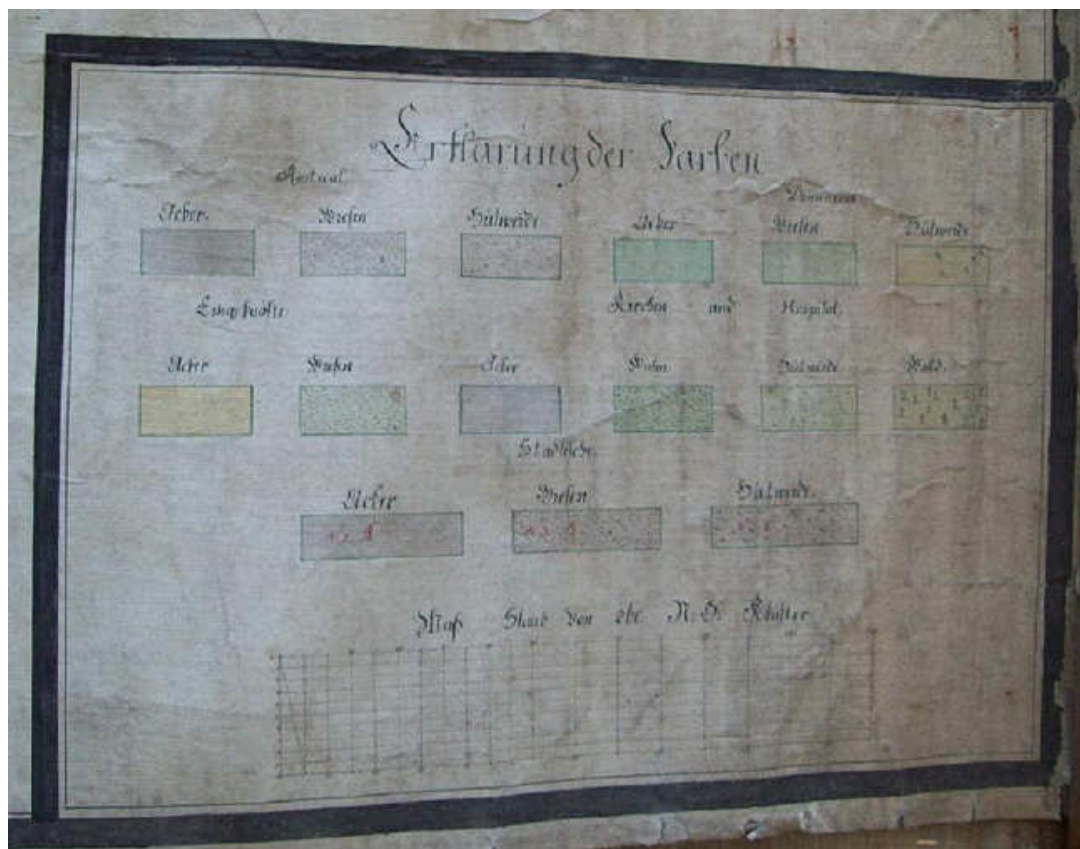 Erklärung der Farben
Rustical Dominical
Acker Wiesen Hütweide Acker Wiesen Hütweide
Kirchen und Hospital
Acker Wiesen Acker Wiesen Hutweide Wald
Städtische
Acker Wiesen Hutweide
Maß Staab von N. Ö. Klafter